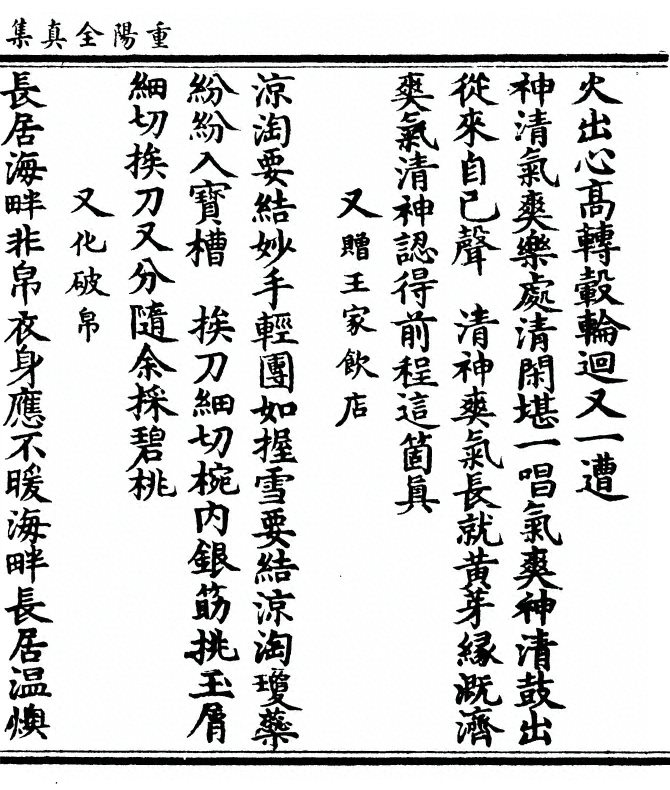 重陽全真集
火出心高轉轂輪迴又一遭
神清氣爽樂處清閑堪一唱氣爽神清鼓出
從來自已聲　清神爽氣長就黃芽緣溉濟
爽氣清神認得前程這箇眞
又贈王家飲店
涼淘要結妙手輕團如握雪要結涼淘瓊藥
紛紛入寶槽　挨刀細切椀内銀筯挑玉屑
細切挨刀又分隨余採碧桃
又化破帛
長居海畔非帛衣身應不暖海畔長居温燠